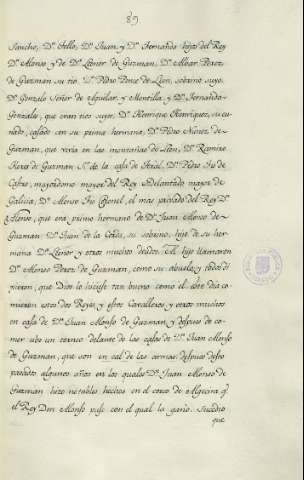 89
Sancho, Dⁿ. Tello, Dⁿ. Juan, y Dⁿ. Fernando hijos del Rey
Dⁿ. Alonso, y de Dª. Leonor de Guzman, Dⁿ. Albar Perez
de Guzman su tio. Dⁿ. Pedro Ponce de Leon, sobrino suyo,
Dⁿ. Gonzalo Señor de Aguilar, y Montilla, y Dⁿ. Fernando
Gonzalez, que eran tios suyos, Dⁿ. Henrique Henriquez, su cu-
ñado, casado con su prima hermana, Dⁿ. Pedro Nuñez de
Guzman, que vivia en las montañas de Leon, Dⁿ. Ramiro
Florez de Guzman Sʳ. de la casa de Toral. Dⁿ. Pedro Frs de
Castro, mayordomo mayor del Rey Adelantado mayor de
Galicia, Dⁿ. Alonso Frs Coronel, el mas pribado del Rey Dⁿ.
Alonso, que era primo hermano de Dⁿ. Juan Alonso de
Guzman. Dⁿ. Juan de la Cerda, su sobrino, hijo de su her-
mana Dª. Leonor y otros muchos deudos. Al hijo llamaron
Dⁿ. Alonso Perez de Guzman, como su abuelo, y todos di-
xeron, que Dios lo hiciese tan bueno como el. Este dia co-
mieron estos dos Reyes, y estos Cavalleros y otros muchos
en casa de Dⁿ. Juan Alonso de Guzman, y despues de co-
mer ubo un torneo delante de las casas de Dⁿ. Juan Alonso
de Guzman, que son en cal de las Armas despues desto
pasados algunos años en los quales Dⁿ. Juan Alonso de
Guzman hizo notables hechos en el cerco de Algecira q̃
el Rey Don Alonso puso con el qual la gano. Sucedio
que